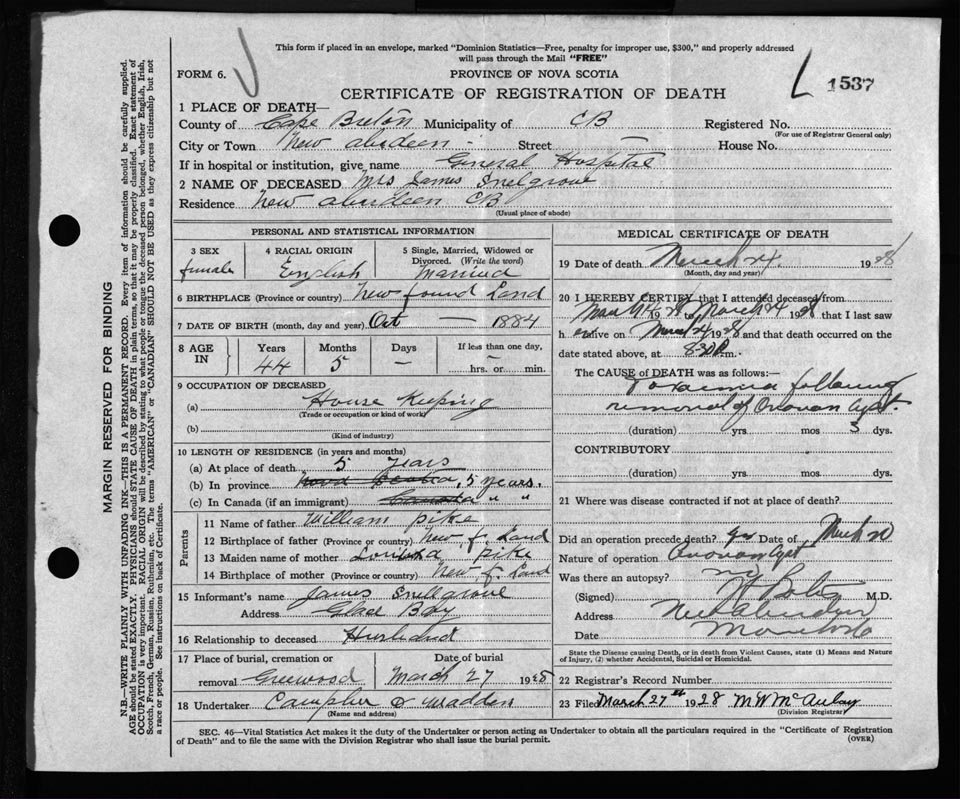 This form if placed in an envelope, marked "Dominion Statistics—Free, penalty for improper use, $300," and properly addressed
will pass through the Mail "FREE"
FORM 6.
PROVINCE OF NOVA SCOTIA
1537
CERTIFICATE OF REGISTRATION OF DEATH
1 PLACE OF DEATH—
County of Cape Breton Municipality of CB Registered No.
(For use of Registrar General only)
City or Town New aberdeen Street — House No.
If in hospital or institution, give name General Hospital
2 NAME OF DECEASED Mrs James Snelgrove
Residence New aberdeen CB
(Usual place of abode)
PERSONAL AND STATISTICAL INFORMATION
3 SEX
female
4 RACIAL ORIGIN
English
5 Single, Married, Widowed or
Divorced. (Write the word)
Married
6 BIRTHPLACE (Province or country) New found Land
7 DATE OF BIRTH (month, day and year) Oct — 1884
8 AGE IN
Years Months Days If less than one day,
44 5 — — hrs. or min.
9 OCCUPATION OF DECEASED
(a) House Keeping
(Trade or occupation or kind of work)
(b)
(Kind of industry)
10 LENGTH OF RESIDENCE (in years and months)
(a) At place of death 5 years
(b) In province Nova Scotia, 5 years.
(c) In Canada (if an immigrant) Canada " "
Parents
11 Name of father William pike
12 Birthplace of father (Province or country) New f. Land
13 Maiden name of mother pike
14 Birthplace of mother (Province or country) New f. Land
15 Informant's name James Snellgrove
Address Glace Bay
16 Relationship to deceased Husband
17 Place of burial, cremation or
removal Greenwood
Date of burial
March 27 1928
18 Undertaker Madden
(Name and address)
MEDICAL CERTIFICATE OF DEATH
19 Date of death March 24. 1928
(Month, day and year)
20 I HEREBY CERTIFY that I attended deceased from
1928 to March 24 1928 that I last saw
h er alive on March 24 1928 and that death occurred on the
date stated above, at 830 P.m.
The CAUSE of DEATH was as follows:—
Toxaemia following
removal of Ovarian Cyst.
(duration) yrs mos 3 dys.
CONTRIBUTORY
(duration) yrs. mos. dys.
21 Where was disease contracted if not at place of death?
Did an operation precede death? yes Date of March 20
Nature of operation Ovarian Cyst
Was there an autopsy? no
(Signed) M.D.
Address New Aberdeen
Date
State the Disease causing Death, or in death from Violent Causes, state (1) Means and Nature
of Injury, (2) whether Accidental, Suicidal or Homicidal.
22 Registrar's Record Number
23 Filed March 27th 1928 M W McAulay
(Division Registrar)
SEC. 46—Vital Statistics Act makes it the duty of the Undertaker or person acting as Undertaker to obtain all the particulars required in the "Certificate of Registration
of Death" and to file the same with the Division Registrar who shall issue the burial permit.
(OVER)
MARGIN RESERVED FOR BINDING
N.B.—WRITE PLAINLY WITH UNFADING INK—THIS IS A PERMANENT RECORD. Every item of information should be carefully supplied.
AGE should be stated EXACTLY. PHYSICIANS should STATE CAUSE OF DEATH in plain terms, so that it may be properly classified. Exact statement of
OCCUPATION is very important. RACIAL ORIGIN will be described by stating to what people or tongue the deceased person belonged, whether English, Irish,
Scotch, French, German, Russian, Ruthenian, etc. The terms "AMERICAN" or "CANADIAN" SHOULD NOT BE USED as they express citizenship but not
a race or people. See instructions on back of Certificate.